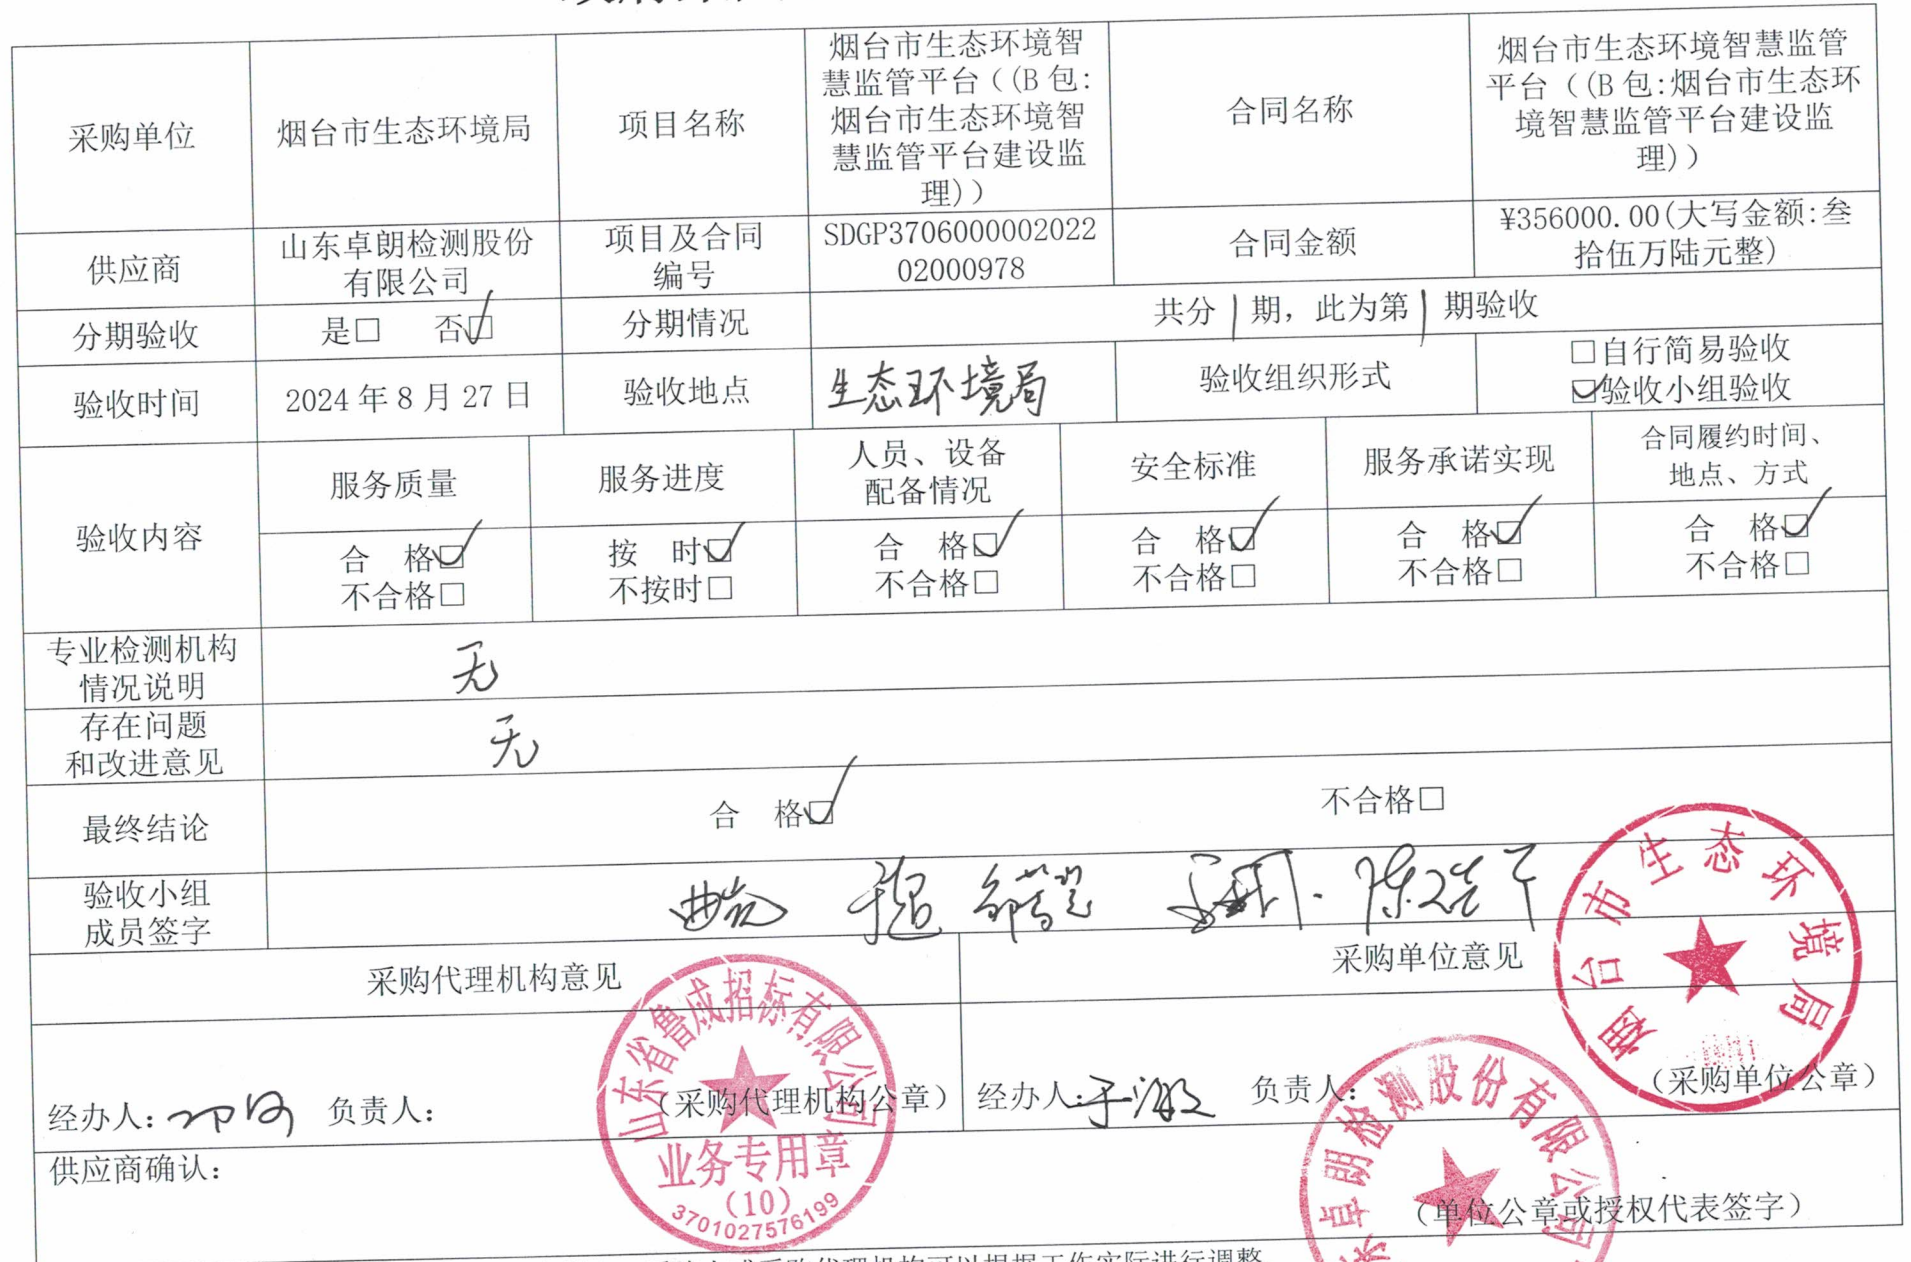 采购单位
烟台市生态环境局
项目名称
烟台市生态环境智
慧监管平台（(B包:
烟台市生态环境智
慧监管平台建设监
理)）
合同名称
烟台市生态环境智慧监管
平台（(B包:烟台市生态环
境智慧监管平台建设监
理)）
供应商
山东卓朗检测股份
有限公司
项目及合同
编号
SDGP3706000002022
02000978
合同金额
¥356000.00(大写金额:叁
拾伍万陆元整)
分期验收
是□ 否☑
分期情况
共分1期，此为第1期验收
验收时间
2024年8月27日
验收地点
生态环境局
验收组织形式
□自行简易验收
☑验收小组验收
验收内容
服务质量
服务进度
人员、设备
配备情况
安全标准
服务承诺实现
合同履约时间、
地点、方式
合 格☑
不合格□
按 时☑
不按时□
合 格☑
不合格□
合 格☑
不合格□
合 格☑
不合格□
合 格☑
不合格□
专业检测机构
情况说明
无
存在问题
和改进意见
无
最终结论
合 格☑ 不合格□
验收小组
成员签字
采购代理机构意见
采购单位意见
经办人: 负责人:
（采购代理机构公章）
经办人: 负责人:
（采购单位公章）
供应商确认:
（单位公章或授权代表签字）
山东省鲁成招标有限公司
业务专用章
(10)
3701027576199
烟台市生态环境局
卓朗检测股份有限公司
采购代理机构可以根据工作实际进行调整